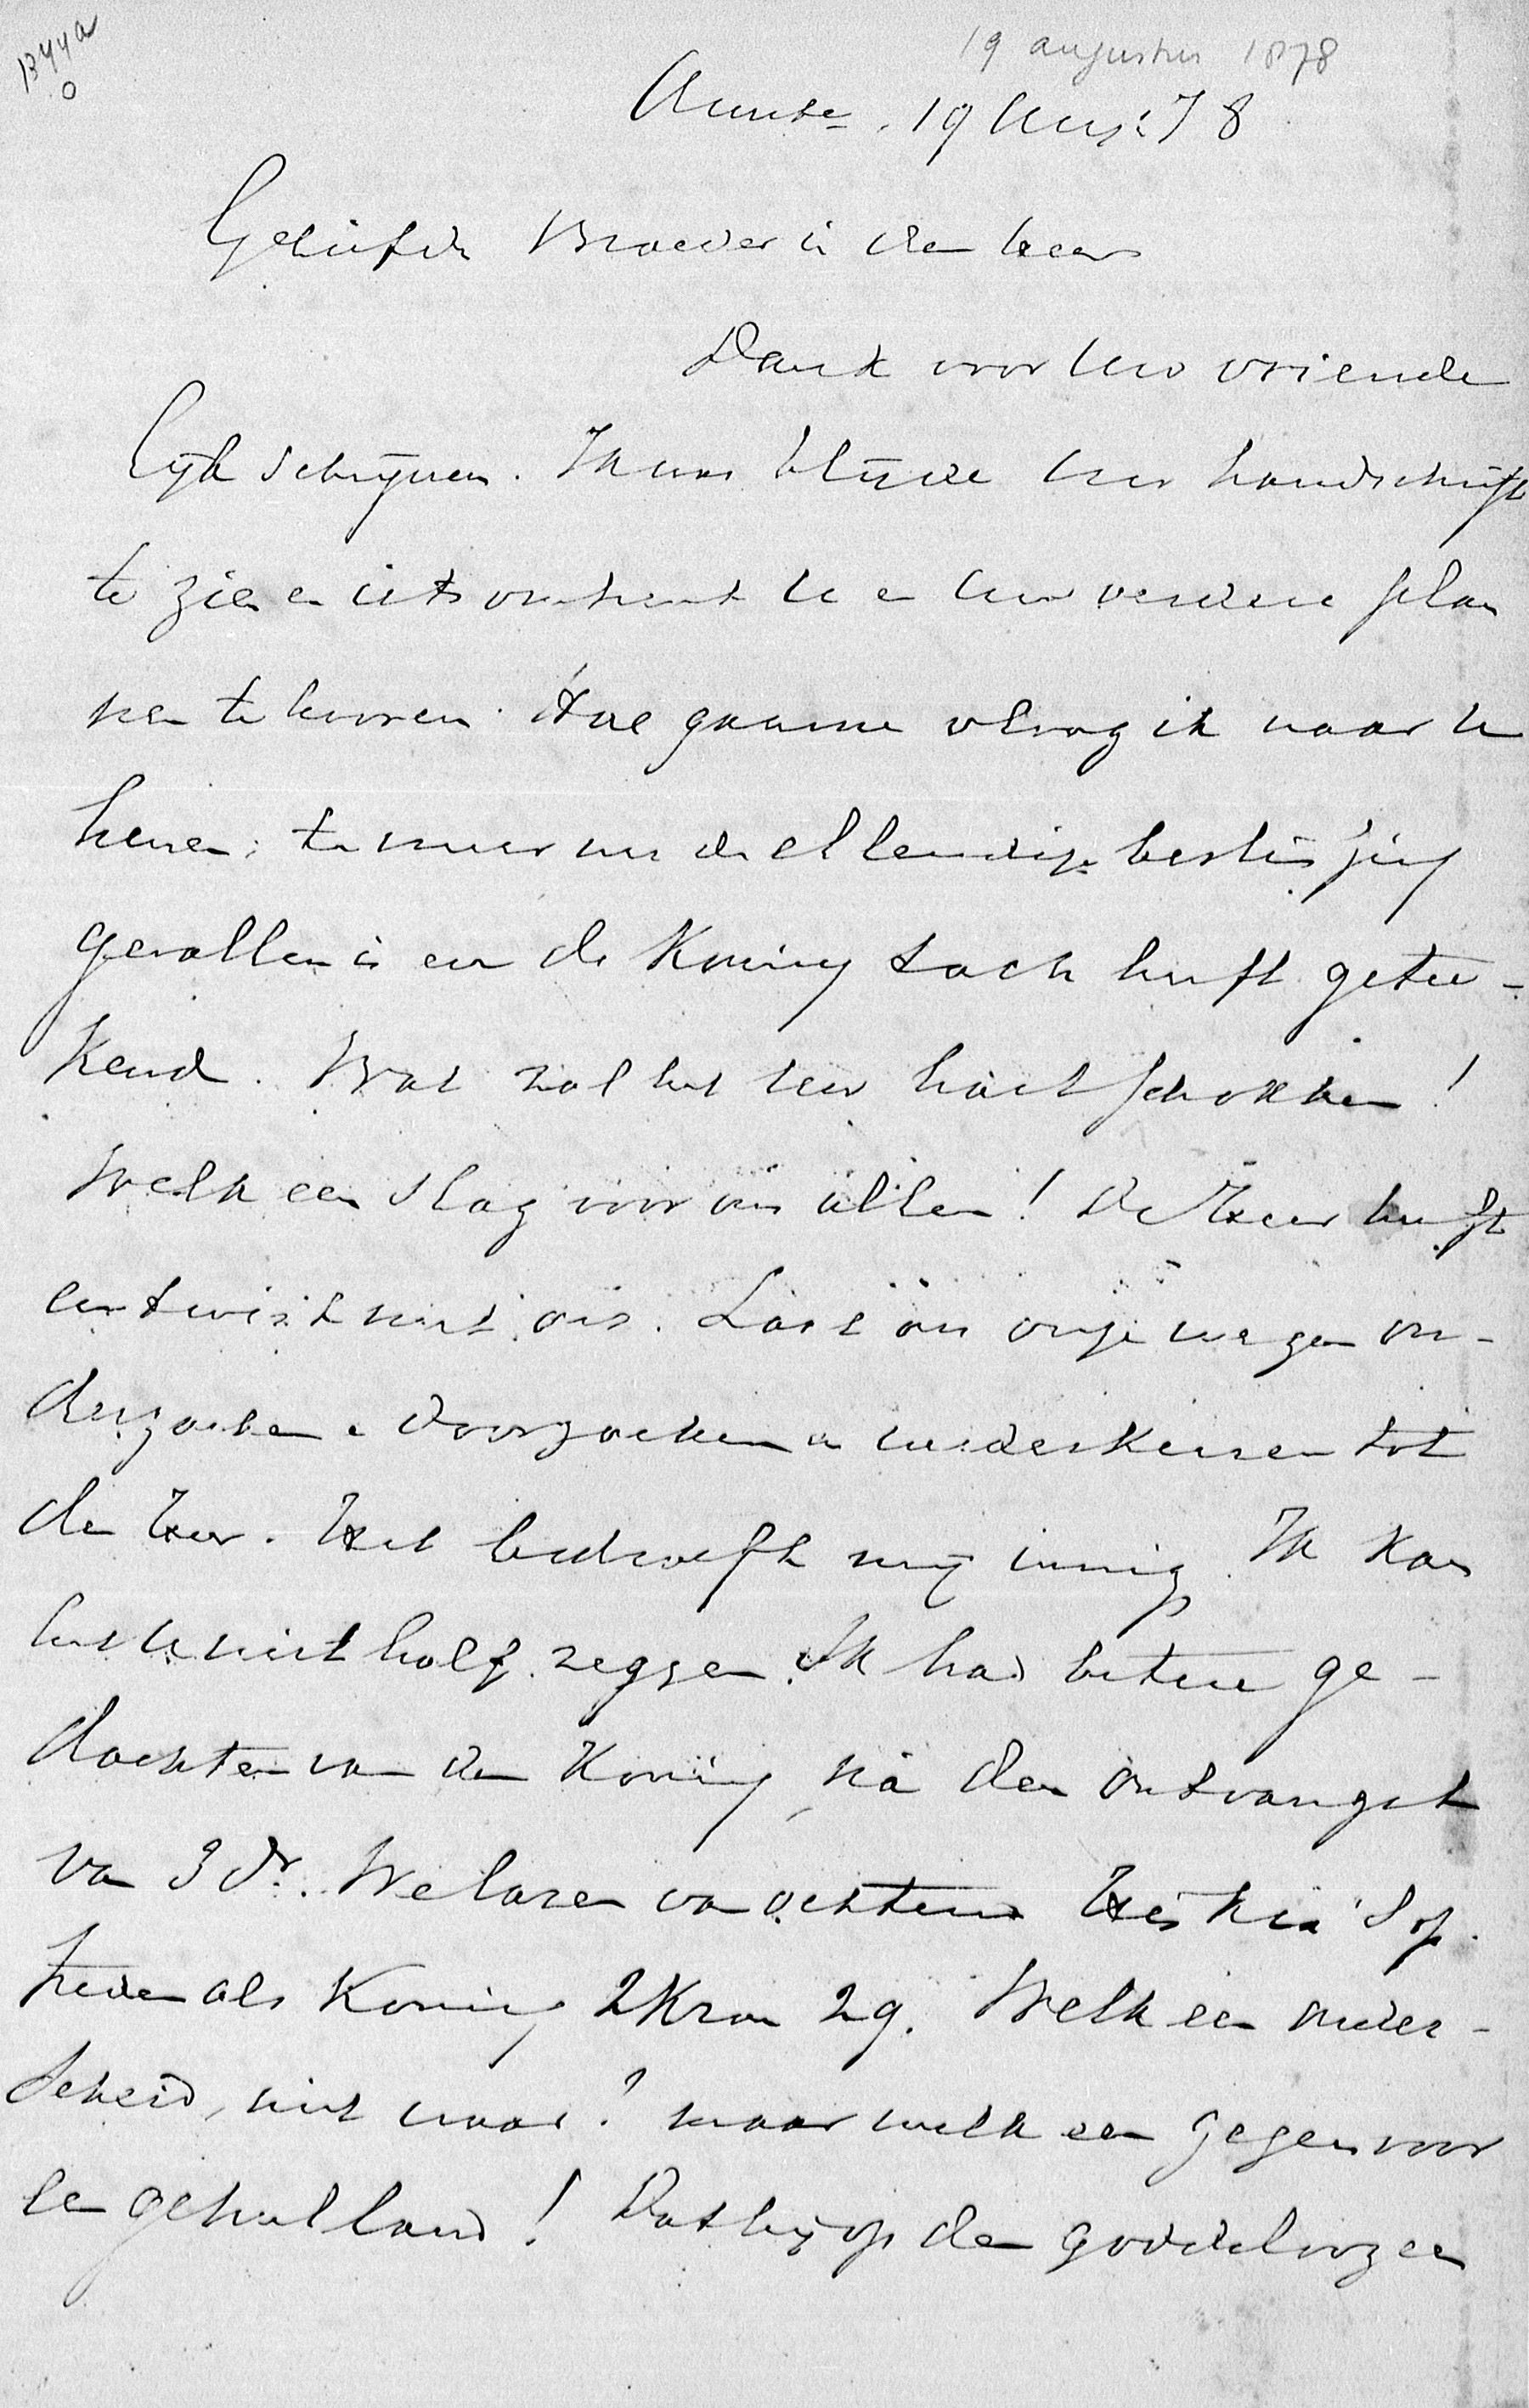 1344a
0
19 augustus 1878
19 Aug: 78
Geliefde Broeder in den Heer
Dank voor Uw vriende
lijk schrijven. Ik was blijde Uw handschrift
te zien en iets omtrent U en Uw verdere plan
nen te hooren. Hoe gaarne vloog ik naar U
henen; te meer nu de ellendige beslissing
gevallen is en de Koning toch heeft getee-
kend. Wat zal het Uw hart schokken!
Welk een slag voor ons allen! De Heer heeft
een twist met ons. Laat ons onze wegen on-
derzoeken en doorzoeken en wederkeeren tot
den Heer. Het bedroeft mij innig. Ik kan
het U niet half zeggen. Ik had betere ge-
dachten van den Koning, ná den ontvangst
van 3 dr. We lazen van ochtend Hiskia's op
treden als Koning 2 Kron 29. Welk een onder-
scheid, niet waar? maar welk een zegen voor
een geheel land! Dat hij op den goddeloozen